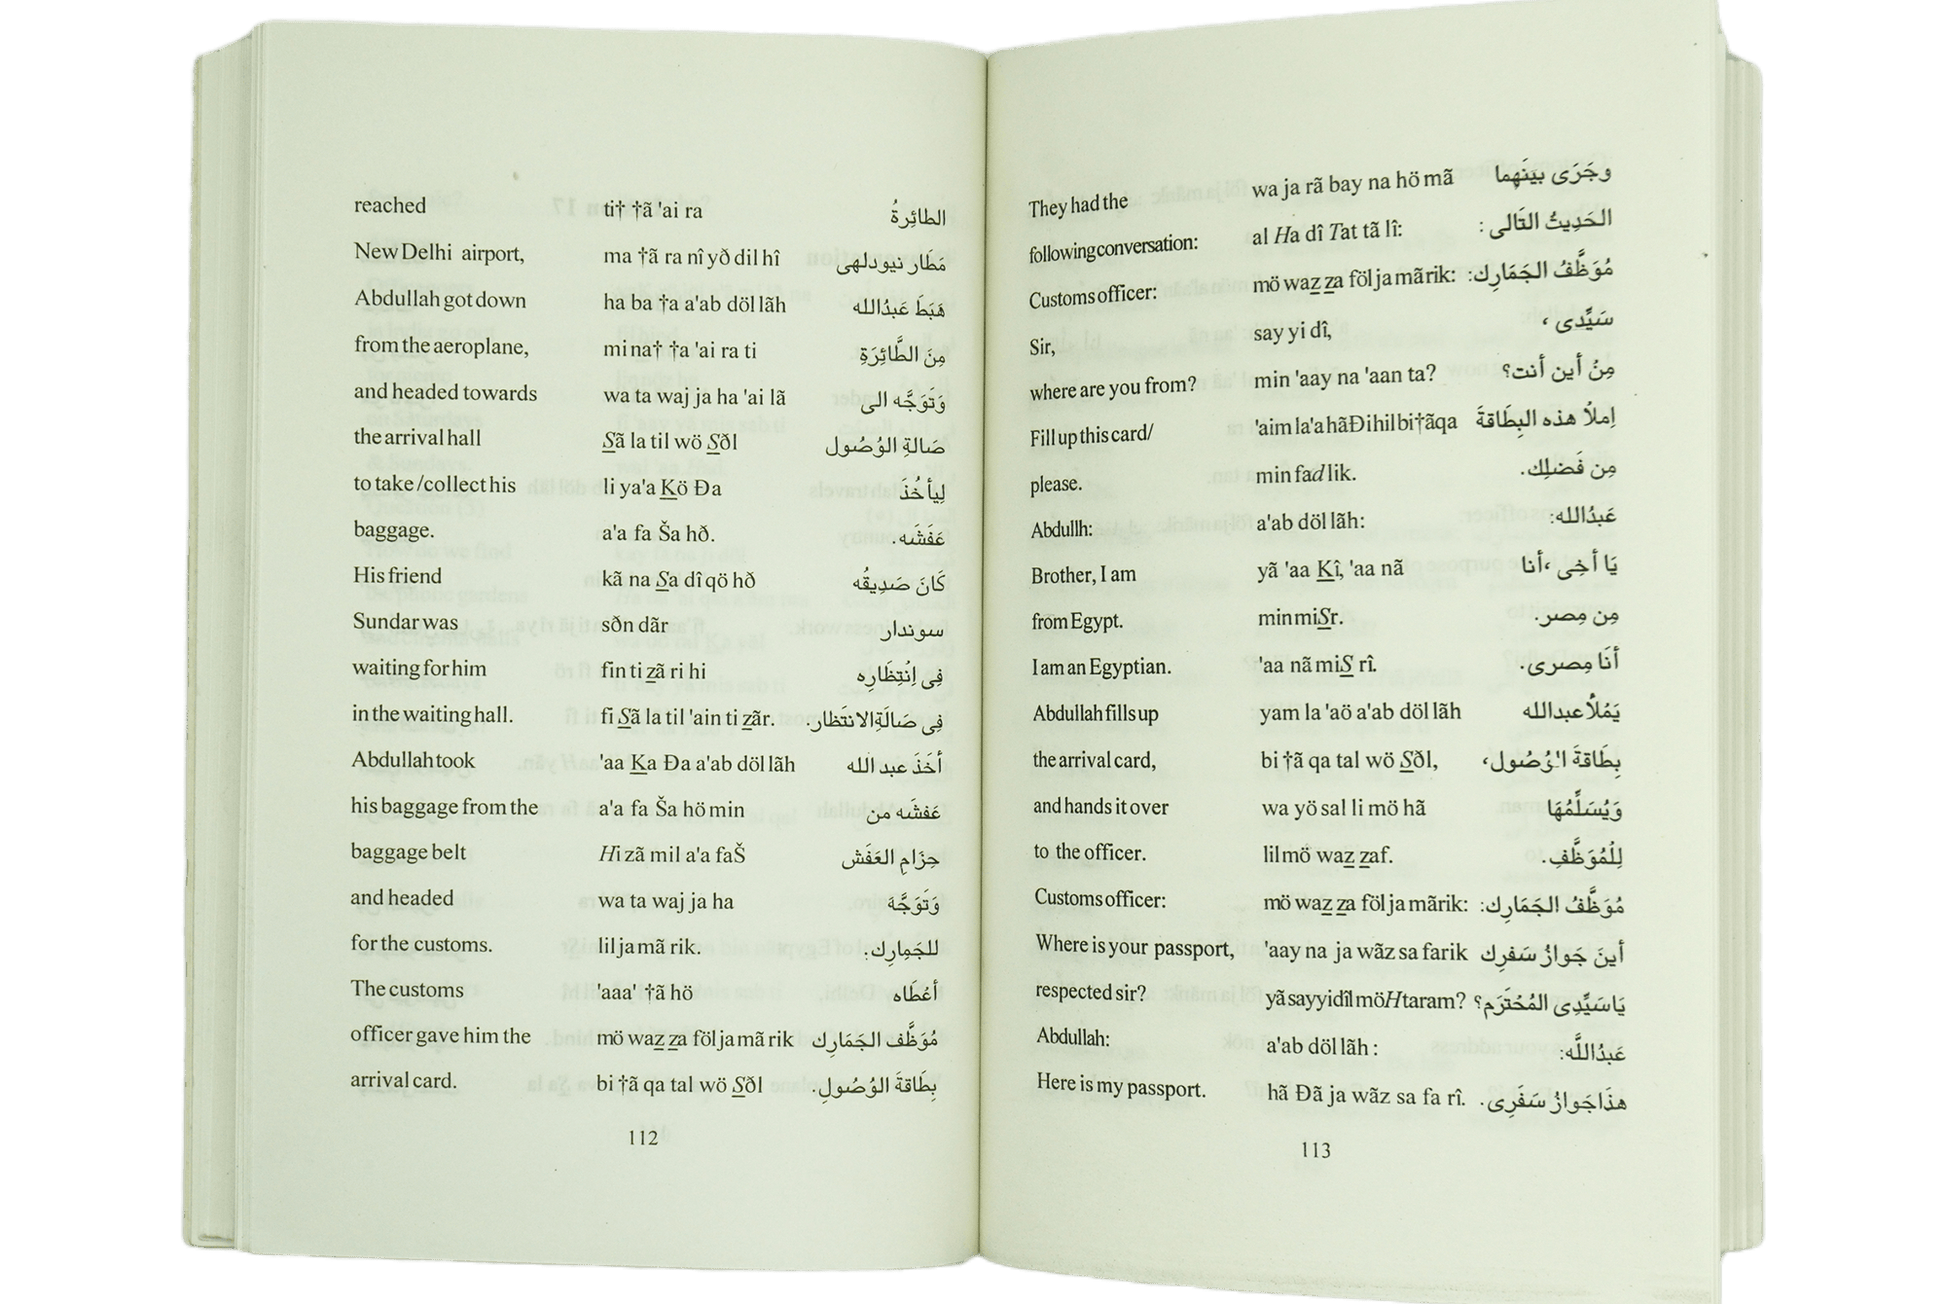 reached ti† †ã 'ai ra الطائِرةُ
New Delhi airport, ma †ã ra nî yð dil hî مَطَار نيودلهى
Abdullah got down ha ba †a a'ab döl lãh هَبَطَ عَبدُالله
from the aeroplane, mi na† †a 'ai ra ti مِنَ الطَّائِرَةِ
and headed towards wa ta waj ja ha 'ai lã وَتَوَجَّه الى
the arrival hall Sã la til wö Sðl صَالةِ الوُصُول
to take/collect his li ya'a Kö Ða لِيأخُذَ
baggage. a'a fa Ša hð. عَفَشَه.
His friend kã na Sa dî qö hð كَانَ صَدِيقُه
Sundar was sðn dãr سوندار
waiting for him fin ti zã ri hi فِى اِنُتِظَارِه
in the waiting hall. fi Sã la til 'ain ti zãr. فِى صَالَةِالانتَظار.
Abdullah took 'aa Ka Ða a'ab döl lãh أخَذَ عبد الله
his baggage from the a'a fa Ša hö min عَفشَه من
baggage belt Hi zã mil a'a faŠ حِزَامِ العَفَش
and headed wa ta waj ja ha وَتَوَجَّهَ
for the customs. lil ja mã rik. للجَمِارِك.
The customs 'aaa' †ã hö أعُطَاه
officer gave him the mö waz za föl ja mã rik مُوَظَّف الجَمَارِك
arrival card. bi †ã qa tal wö Sðl بِطَاقةَ الوُصُولِ.
112
They had the wa ja rã bay na hö mã وجَرَى بيَنَهِما
following conversation: al Ha dî Tat tã lî: الحَدِيثُ التَالى :
Customs officer: mö waz za föl ja mã rik: مُوَظَّفُ الجَمَارِك:
Sir, say yi dî, سَيِّدى ،
where are you from? min 'aay na 'aan ta? مِنُ أين أنت؟
Fill up this card/ 'aim la'a hã Ði hil bi †ã qa اِملاُ هذه البِطَاقةَ
please. min fad lik. مِن فَضلِك.
Abdullh: a'ab döl lãh: عَبدُالله:
Brother, I am yã 'aa Kî, 'aa nã يَا أخِى ،أنا
from Egypt. min miSr. مِن مِصر.
I am an Egyptian. 'aa nã miS rî. أنَا مِصرى.
Abdullah fills up yam la 'aö a'ab döl lãh يَمُلأعبدالله
the arrival card, bi †ã qa tal wö Sðl, بِطَاقةَ الوُصُول،
and hands it over wa yö sal li mö hã وَيُسَلِّمُهَا
to the officer. lil mö waz zaf. لِلُمُوَظَّفِ.
Customs officer: mö waz za föl ja mã rik: مُوَظَّفُ الجَمَارِك:
Where is your passport, 'aay na ja wãz sa farik أينَ جَوازُ سَفرِك
respected sir? yã sayyidîl möHtaram? يَاسَيِّدِى المُحُتَرَم؟
Abdullah: a'ab döl lãh : عَبدُاللَّه:
Here is my passport. hã Ðã ja wãz sa fa rî. هذَاجَوازُ سَفَرِى.
113